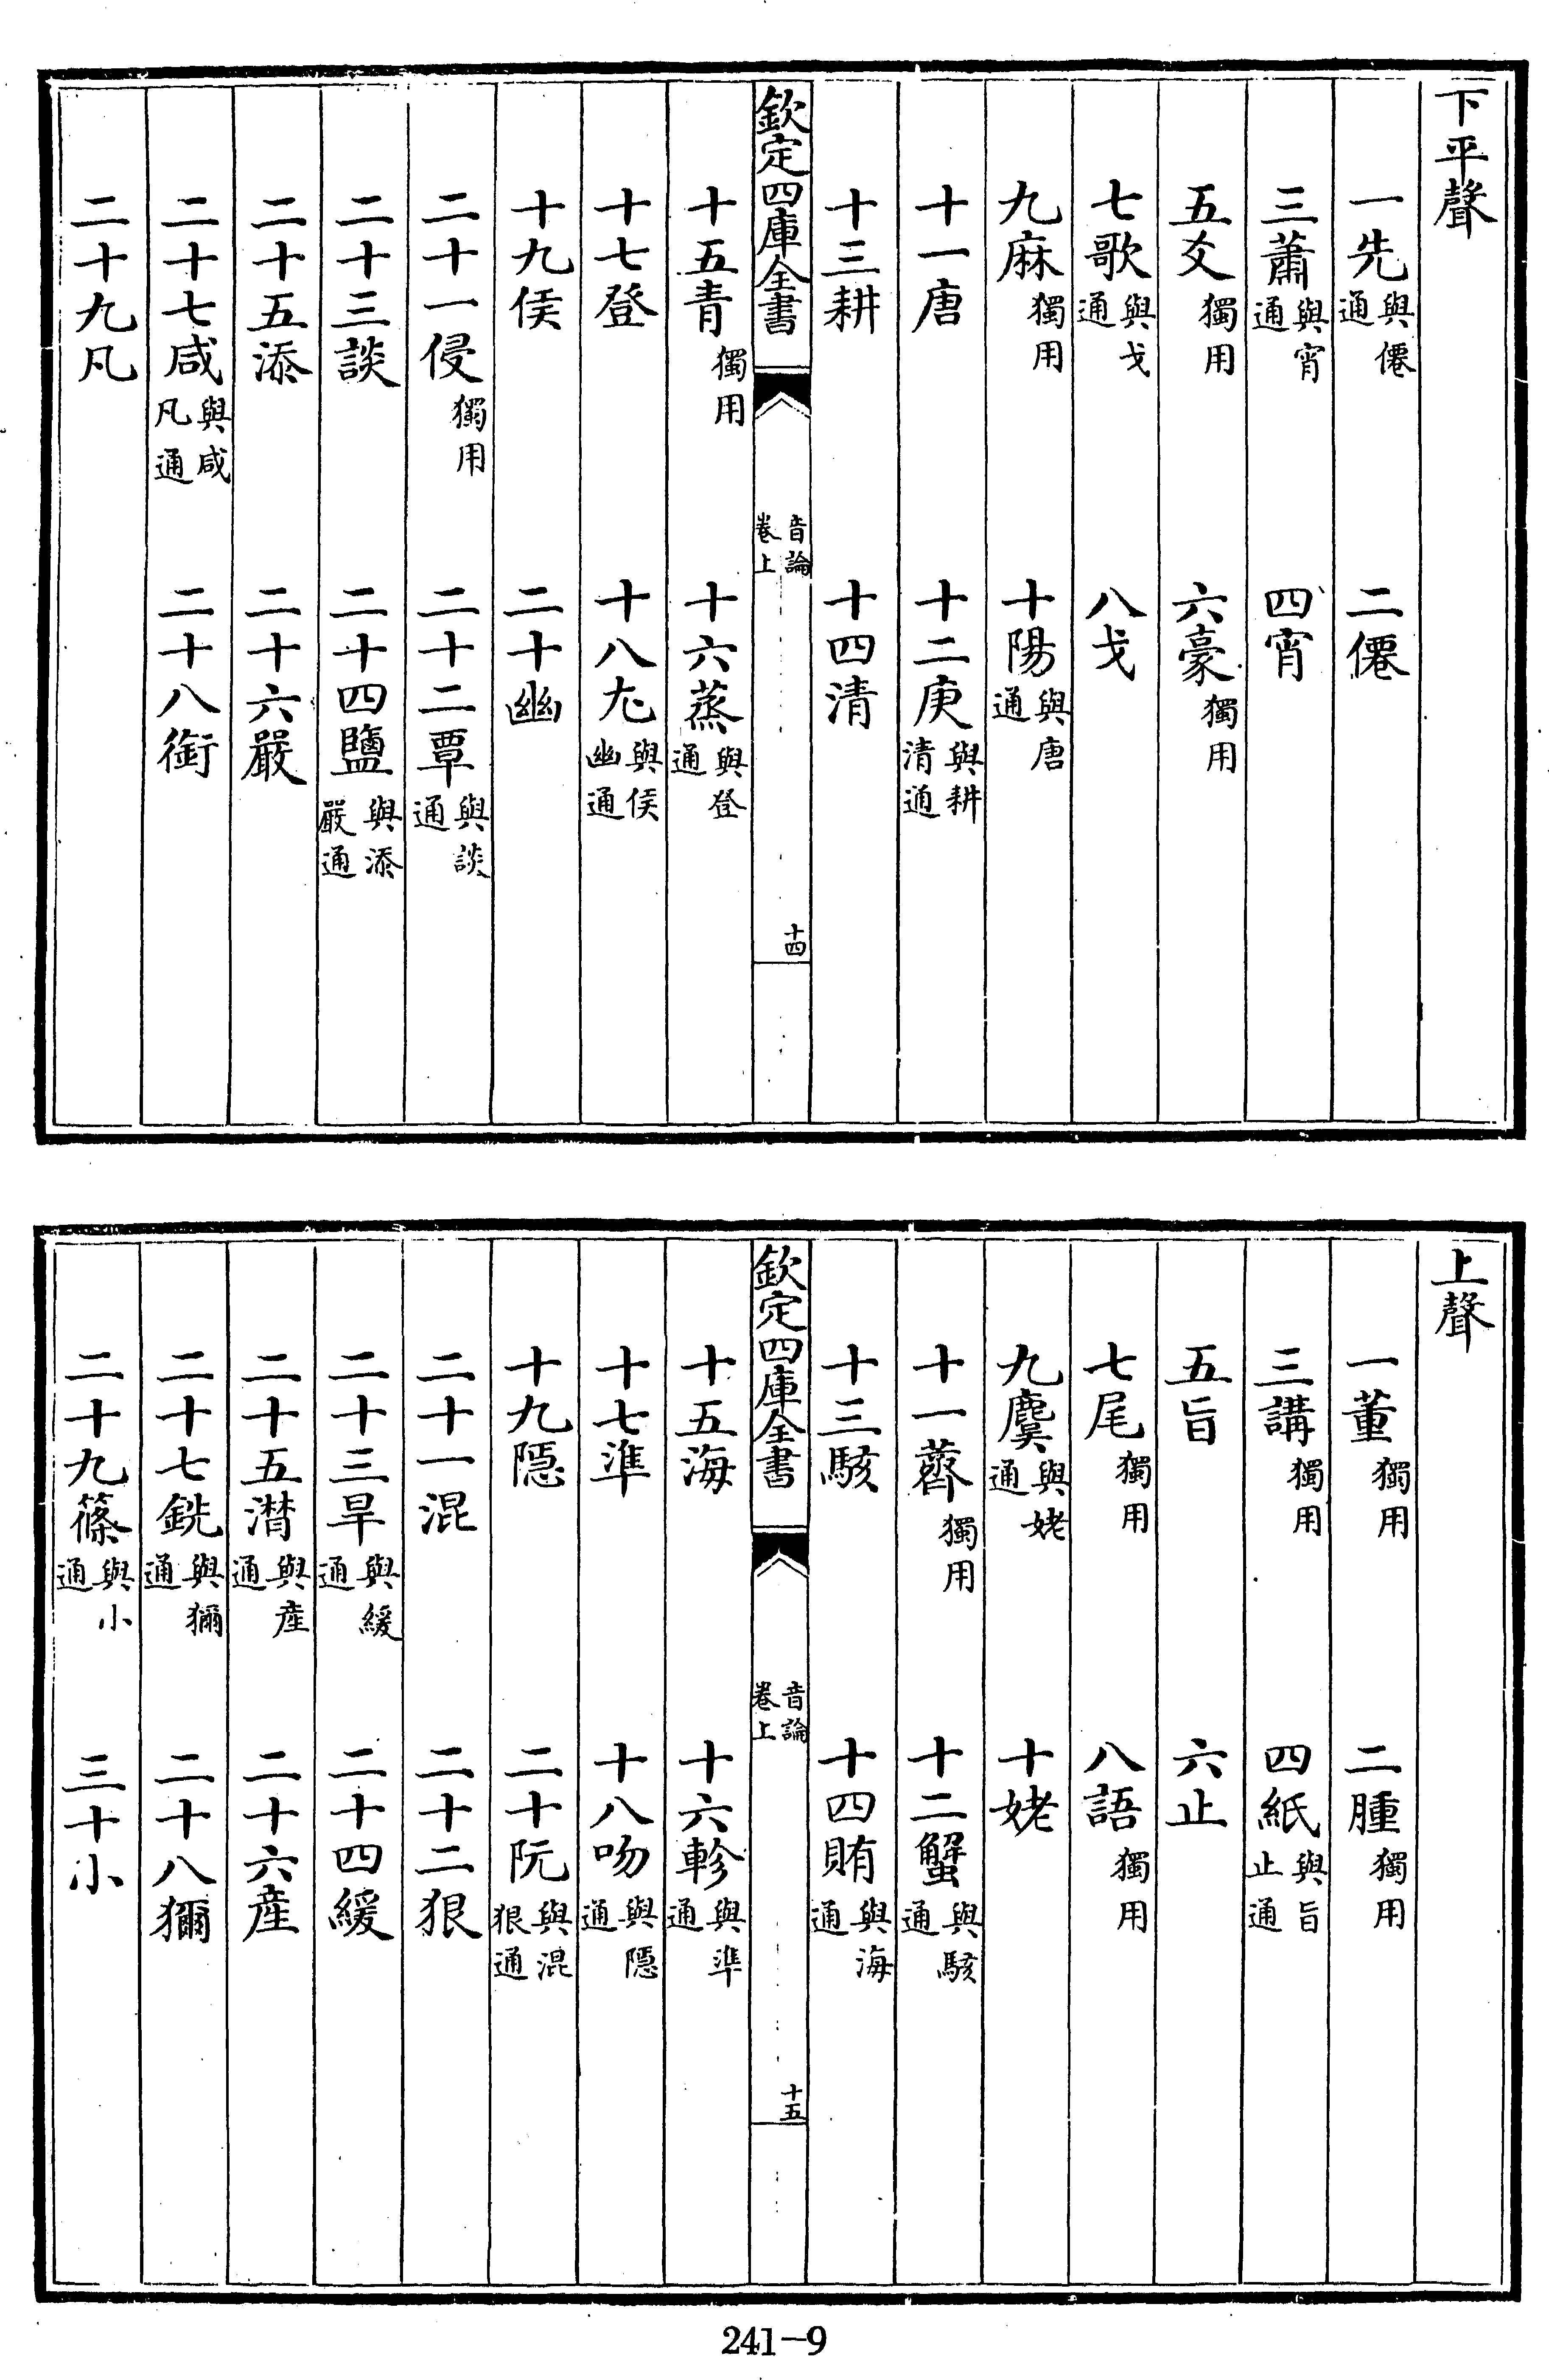 下平聲
一先與僊通　二僊
三蕭與宵通　四宵
五爻獨用　六豪獨用
七歌與戈通　八戈
九麻獨用　十陽與唐通
十一唐　十二庚與耕清通
十三耕　十四清
欽定四庫全書　音論卷上　十四
十五青獨用　十六蒸與登通
十七登　十八尤與侯幽通
十九侯　二十幽
二十一侵獨用　二十二覃與談通
二十三談　二十四鹽與添嚴通
二十五添　二十六嚴
二十七咸與咸凡通　二十八銜
二十九凡
上聲
一董獨用　二腫獨用
三講獨用　四紙與旨止通
五旨　六止
七尾獨用　八語獨用
九麌與姥通　十姥
十一薺獨用　十二蟹與駭通
十三駭　十四賄與海通
欽定四庫全書　音論卷上　十五
十五海　十六軫與準通
十七準　十八吻與隱通
十九隱　二十阮與混狠通
二十一混　二十二狠
二十三旱與緩通　二十四緩
二十五潸與產通　二十六產
二十七銑與獮通　二十八獮
二十九篠與小通　三十小
241-9